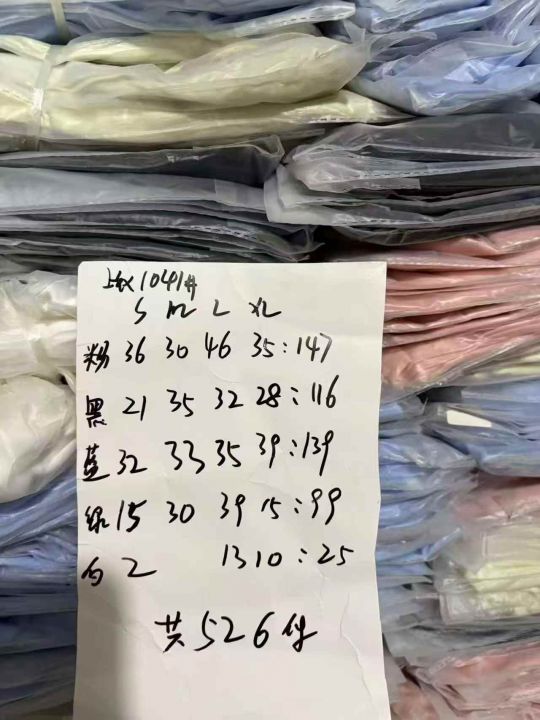 上衣1041#
S M L XL
粉 36 30 46 35:147
黑 21 35 32 28:116
蓝 32 33 35 39:139
绿 15 30 39 15:99
白 2 13 10:25
共526件